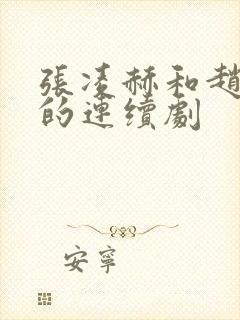 張凌赫和趙
的連續劇
安寧